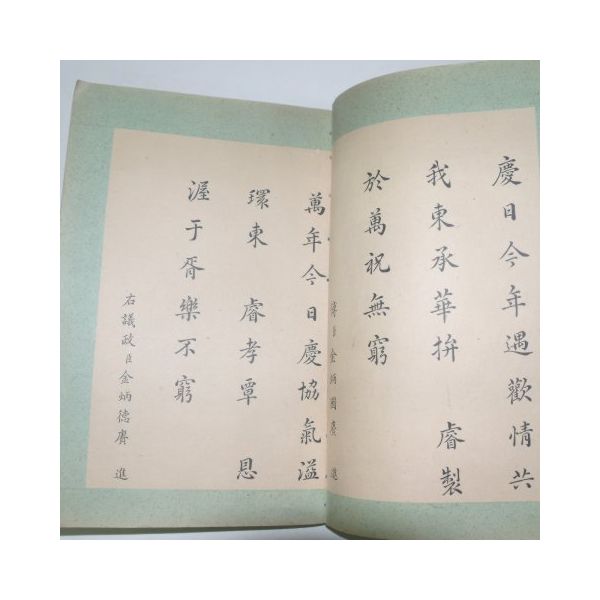 慶日今年遇歡情共
我東承華拚 睿製
於萬祝無窮
傅臣金炳國賡 進
萬年今日慶協氣溢
環東 睿孝覃 恩
渥于胥樂不窮
右議政臣金炳德賡 進